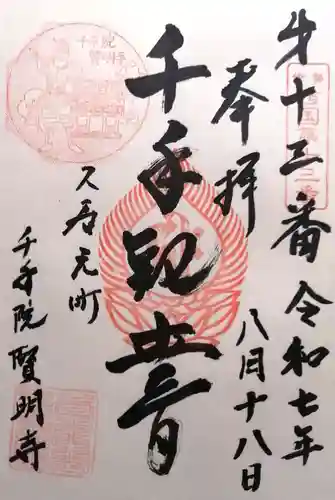 第十三番 令和七年
奉拝 八月十八日
千手観世音
久居元町
千手院賢明寺
千手院
賢明寺